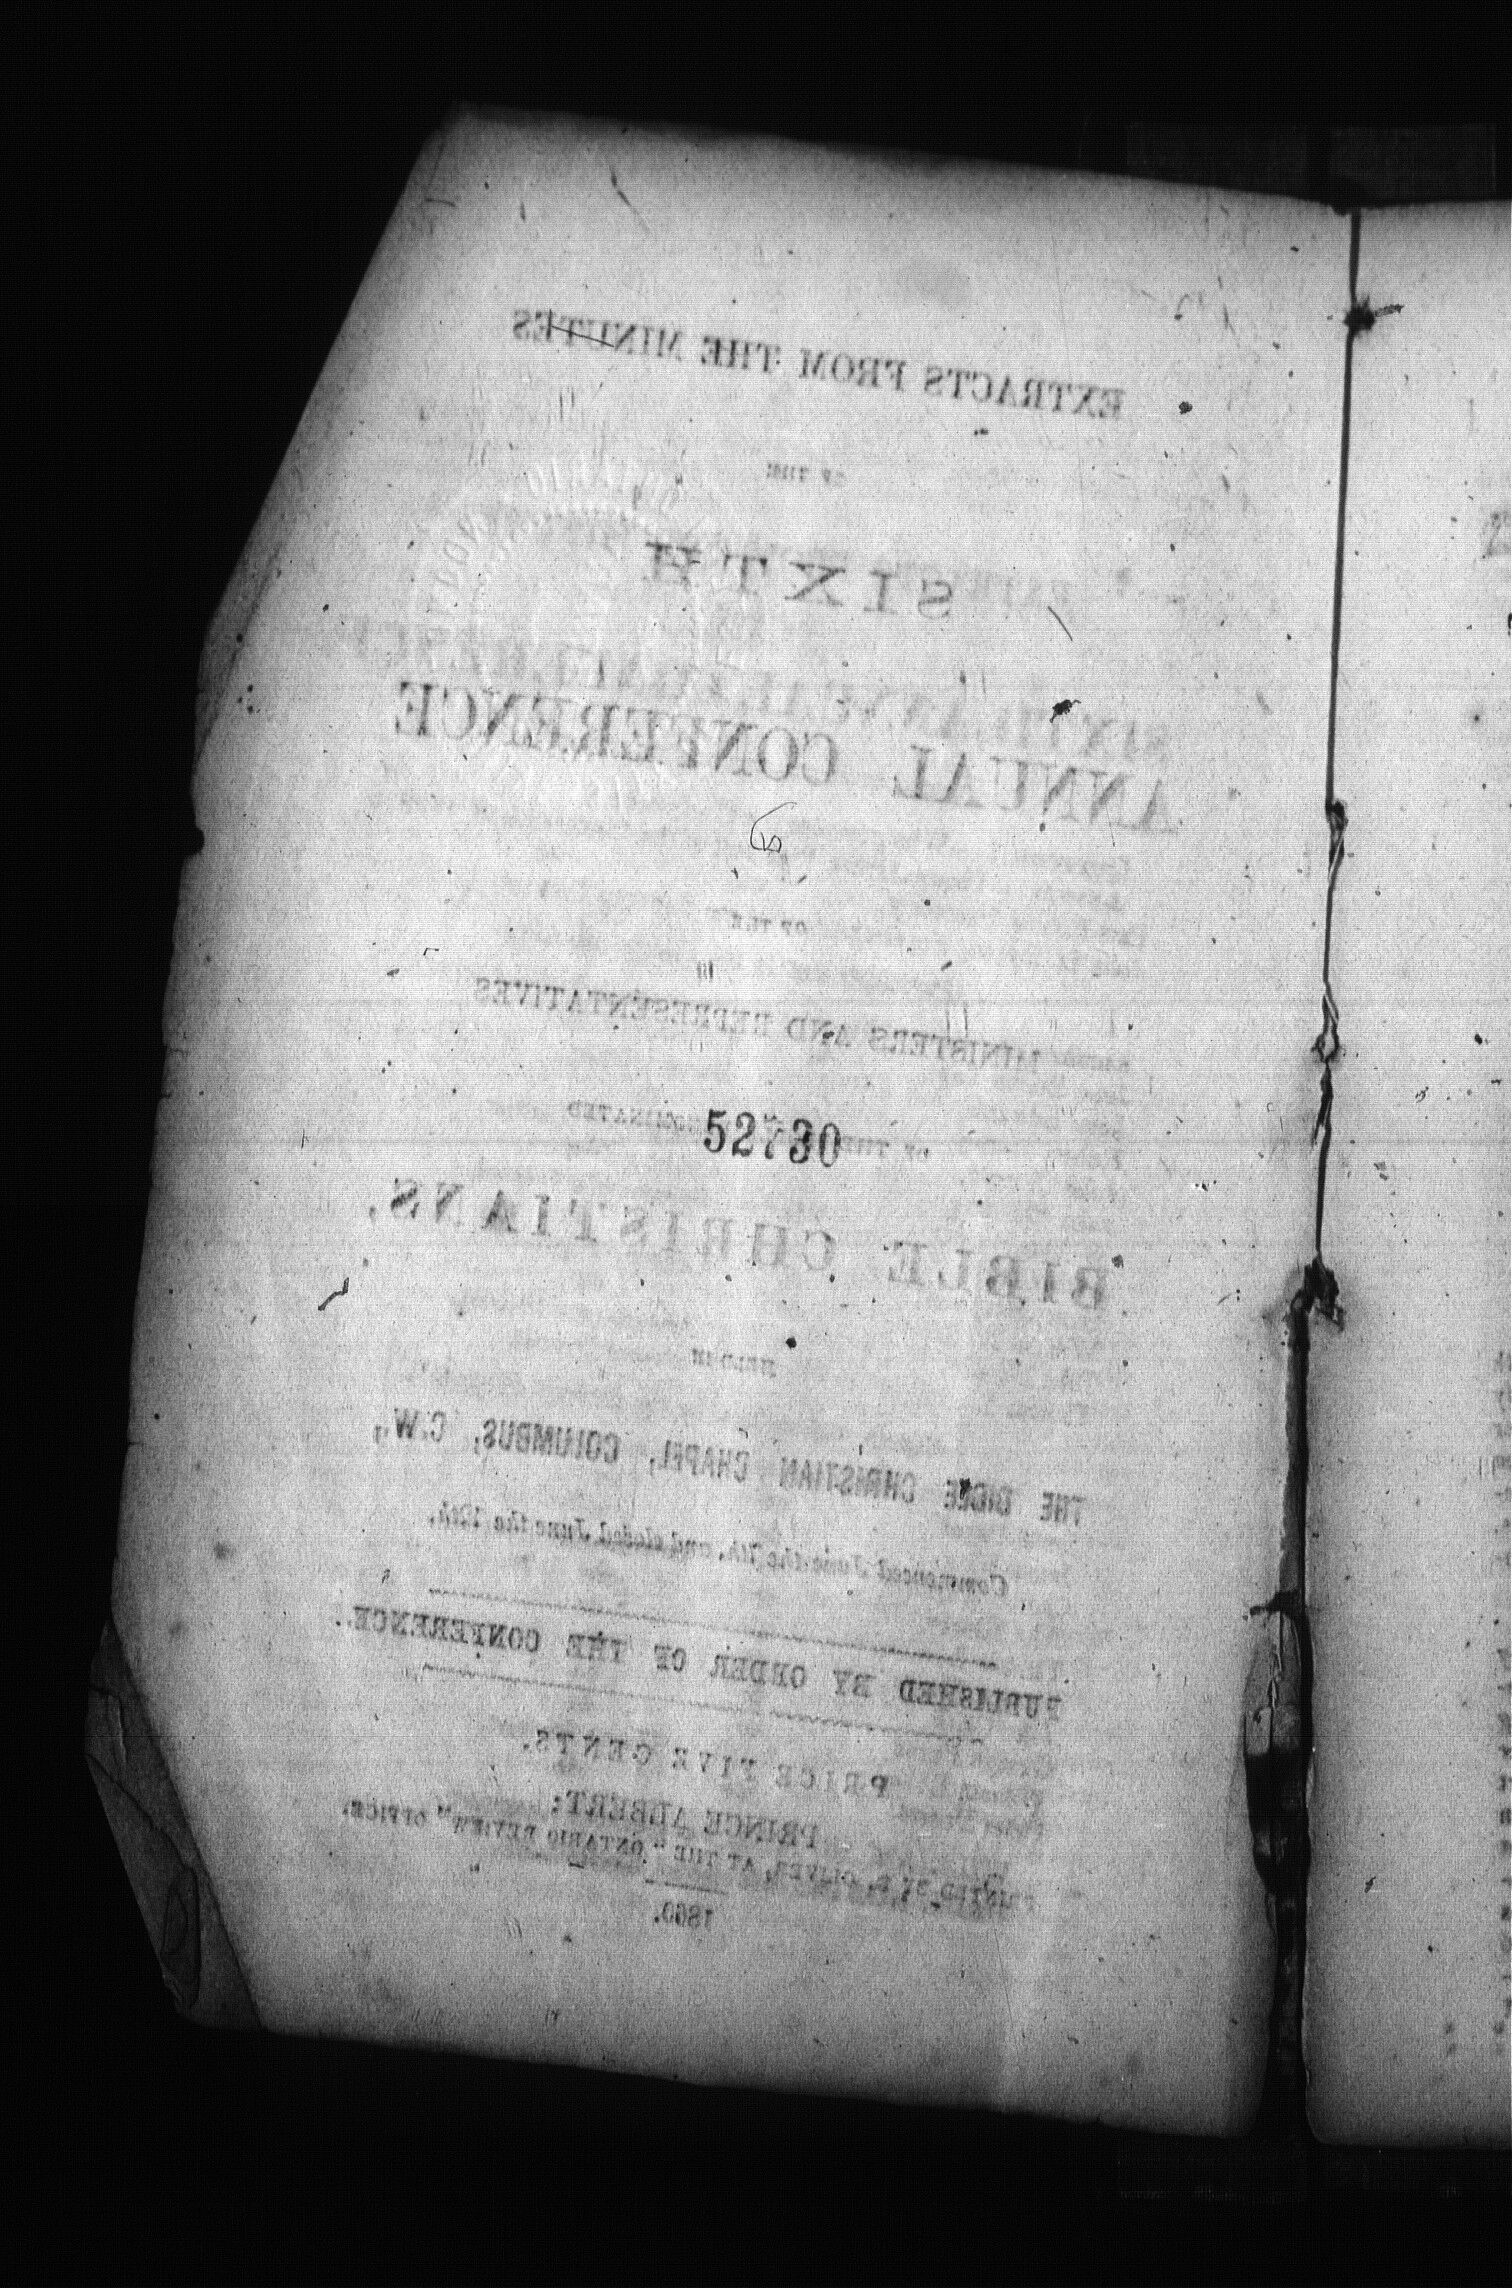 EXTRACTS FROM THE MINUTES
OF THE
SIXTH
ANNUAL CONFERENCE
OF THE
MINISTERS AND REPRESENTATIVES
OF THE DENOMINATED
52730
BIBLE CHRISTIANS,
HELD IN
THE BIBLE CHRISTIAN CHAPEL, COLUMBUS, C.W.,
Commenced June the 7th, and closed June the 13th.
PUBLISHED BY ORDER OF THE CONFERENCE.
PRICE FIVE CENTS.
PRINCE ALBERT:
PRINTED BY OLIVER, AT THE "ONTARIO REVIEW" OFFICE.
1860.